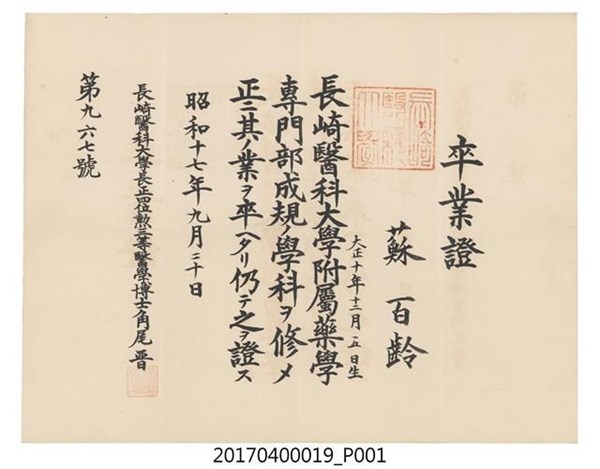 卒業證
蘇百齡
大正十年十二月一五日生
長崎醫科大學附屬藥學
専門部成規ノ學科ヲ修メ
正ニ其ノ業ヲ卒ヘタリ仍テ之ヲ證ス
昭和十七年九月二十日
長崎醫科大學長正四位勲三等醫學博士角尾晋
第九六七號
20170400019_P001